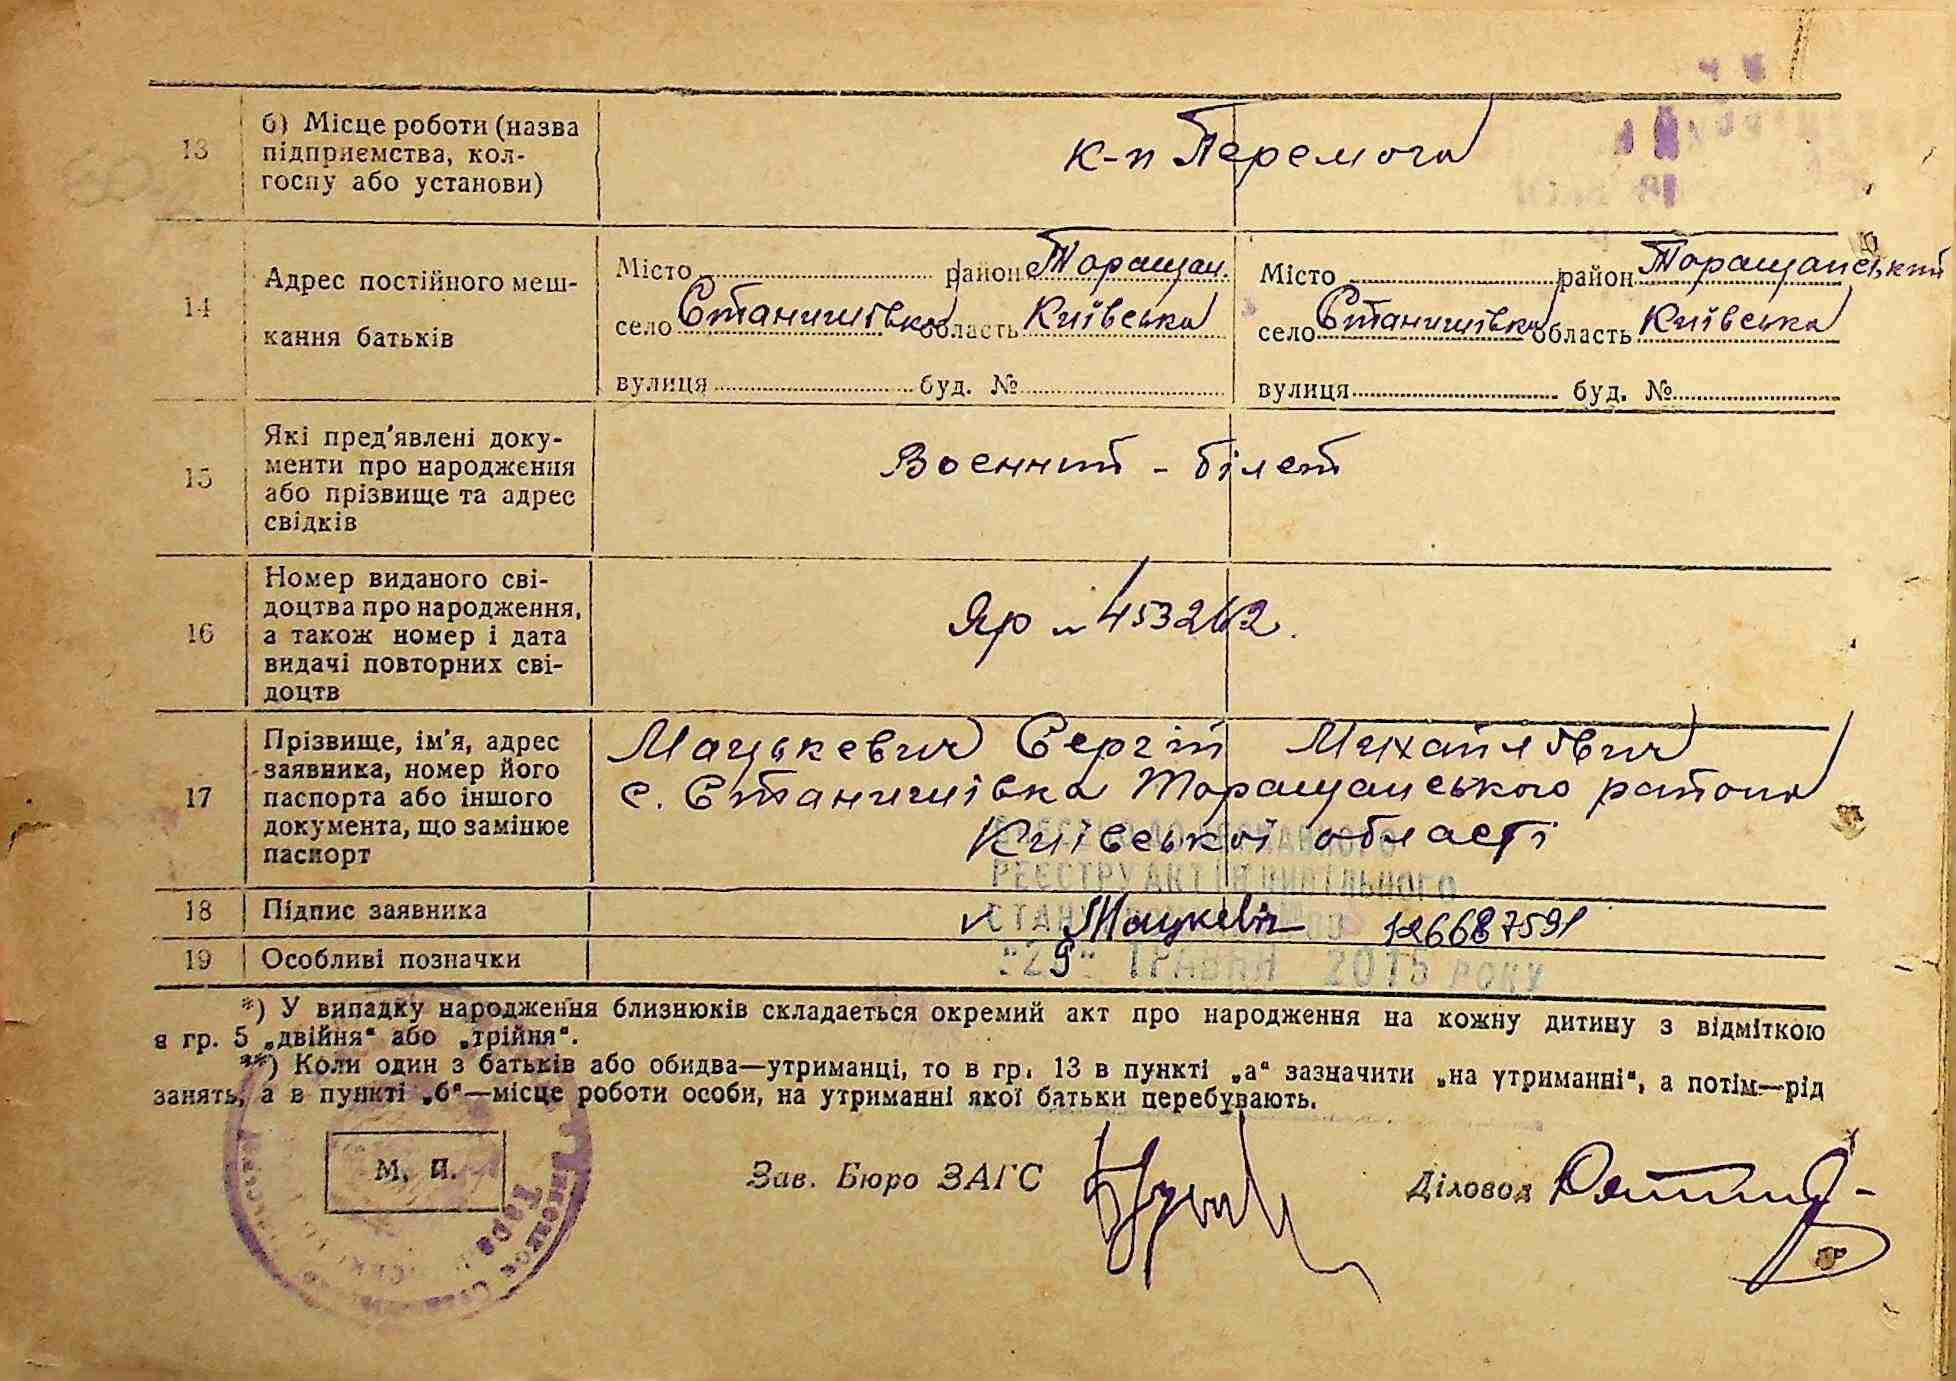 13
б) Місце роботи (назва
підприємства, кол-
госпу або установи)
к-п Перемога
14
Адрес постійного меш-
кання батьків
Місто район Таращан.
село Станишівка область Київська
вулиця буд. №
Місто район Таращанський
село Станишівка область Київська
вулиця буд. №
15
Які пред'явлені доку-
менти про народження
або прізвище та адрес
свідків
Военний - білет
16
Номер виданого сві-
доцтва про народження,
а також номер і дата
видачі повторних сві-
доцтв
Яр № 453262.
17
Прізвище, ім'я, адрес
заявника, номер його
паспорта або іншого
документа, що замінює
паспорт
Мацькевич Сергій Михайлович
с. Станишівка Таращанського району
Київської області
РЕЄСТРУ АКТІВ ЦИВІЛЬНОГО
СТАНУ
18
Підпис заявника
Мацкевіч 126687591
19
Особливі позначки
"29" ТРАВНЯ 2015 РОКУ
*) У випадку народження близнюків складаеться окремий акт про народження на кожну дитину з відміткою
в гр. 5 „двійня“ або „трійня“.
**) Коли один з батьків або обидва—утриманці, то в гр. 13 в пункті „а“ зазначити „на утриманні“, а потім—рід
занять, а в пункті „б“—місце роботи особи, на утриманні якої батьки перебувають.
М. П.
Зав. Бюро ЗАГС
Діловод